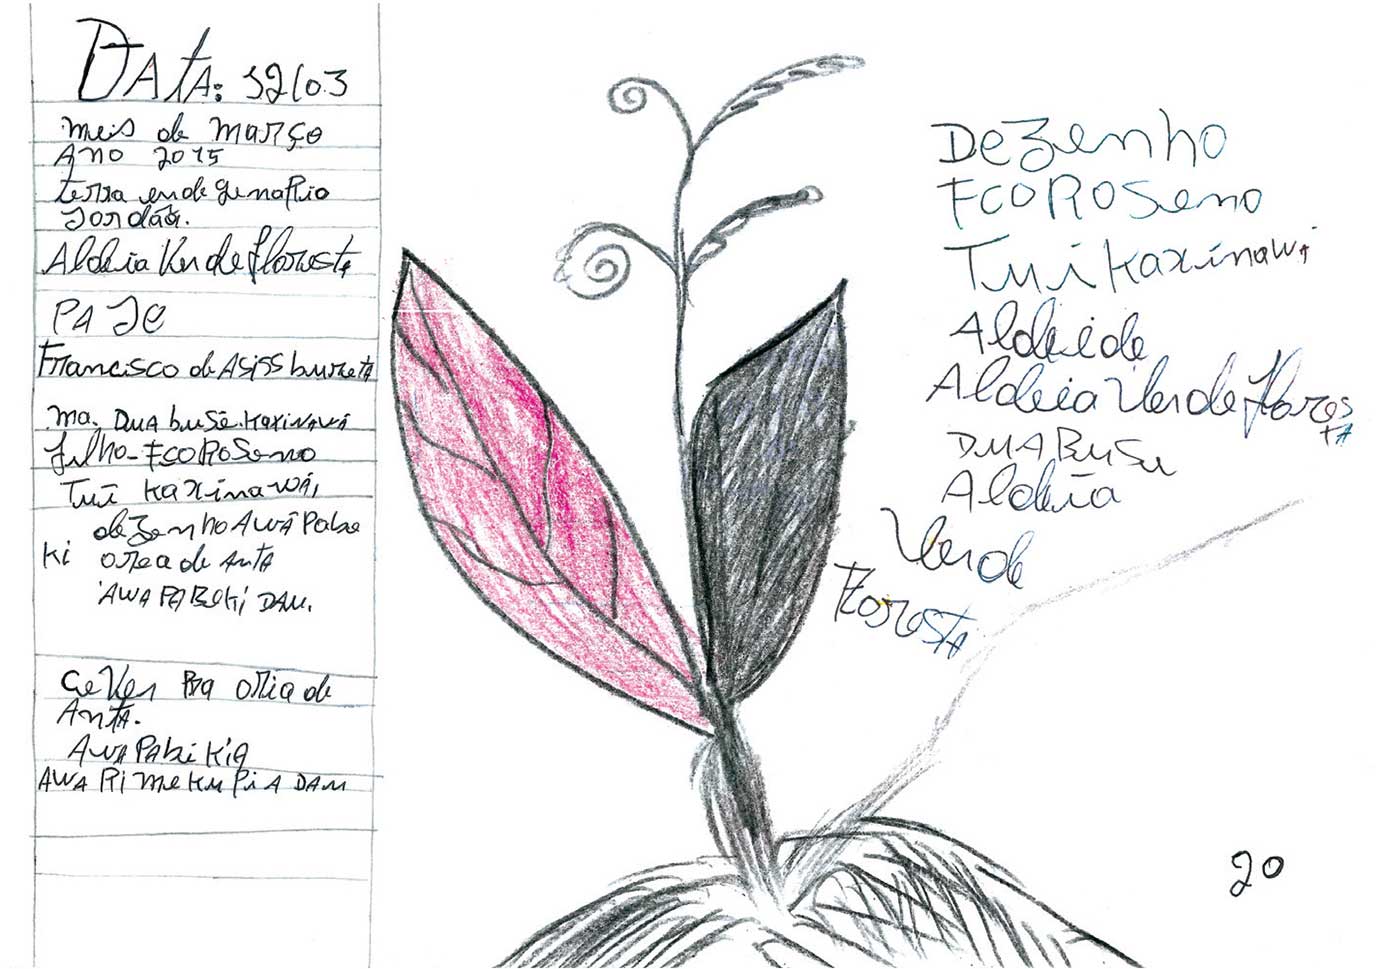 DATA: 12/03
meis de março
Ano 2015
terra endegena Rio
Jordão.
Aldeia Verde floresta
PAJE
Francisco de ASiSS
ma. DUA buSē. Kaxinawá
filho - ECOROSeno
Tui kaxinawá,
dezenho AWÁ Pabe
Ki orea de Anta
AWA PABEKi DAU.
Pra oria de
Anta.
AWA Pabi Kia
AWA Pi meKu Pi A DAU
DeZenho
ECOROSeno
Tui kaxinawá
Aldeide
Aldeia Verde flores
TA
DUA BuSu
Aldeia
Verde
FloreSTA
20